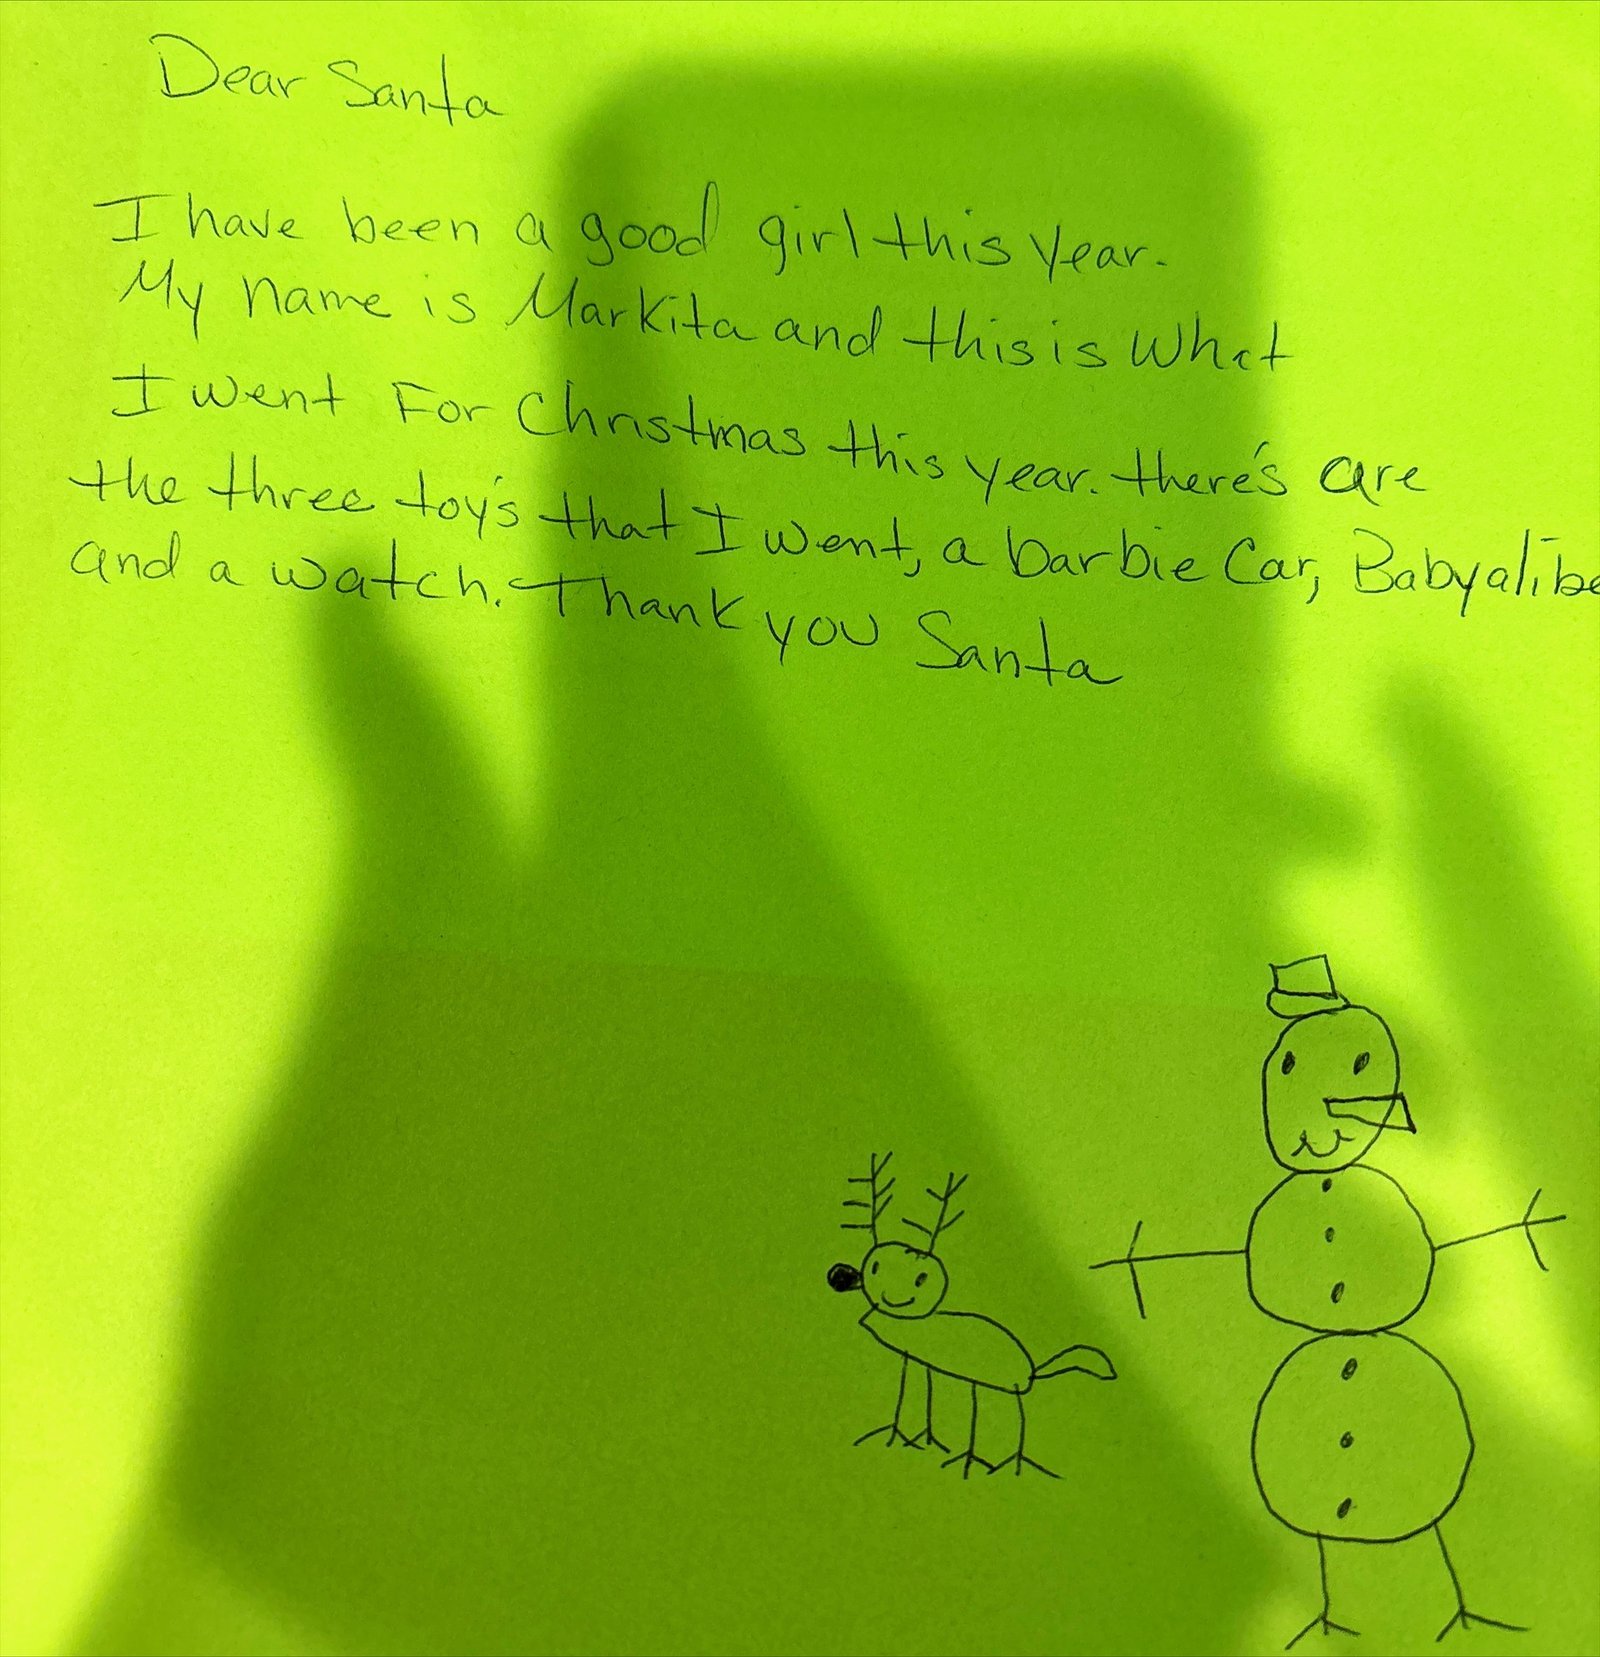 Dear Santa
I have been a good girl this year.
My name is Markita and this is what
I went For Christmas this year. there's are
the three toy's that I went, a barbie Car, Babyalibe
and a watch. Thank you Santa